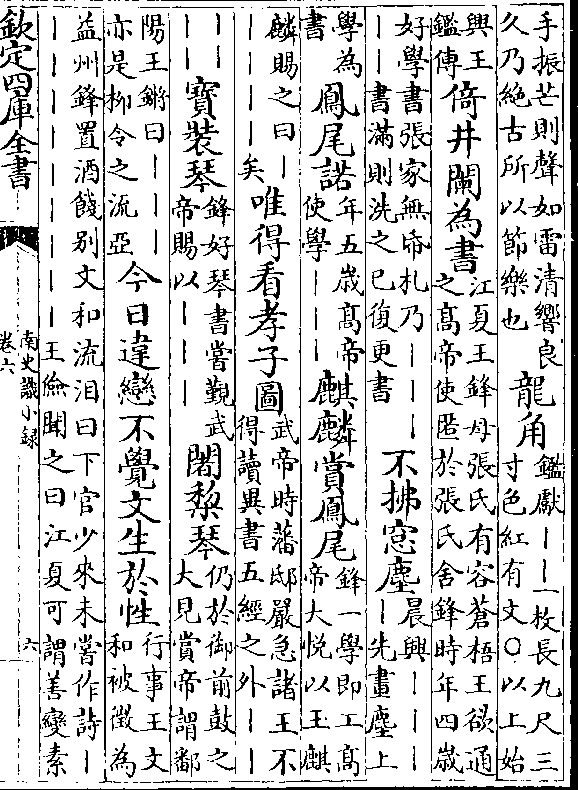 手振芒則聲如雷清響良
久乃絶古所以節樂也
龍角
鑑獻｜｜一枚長九尺三
寸色紅有文〇以上始
興王
鑑傳
倚井闌為書
江夏王鋒母張氏有容蒼梧王欲通
之高帝使匿於張氏舍鋒時年四歲
好學書張家無帋札乃｜｜｜
｜｜書滿則洗之已復更書
不拂窓塵
晨興｜｜｜
｜先畫塵上
學為
書
鳳尾諾
年五歲高帝
使學｜｜｜
麒麟賞鳳尾
鋒一學即工高
帝大悦以玉麒
麟賜之曰｜
｜｜｜｜矣
唯得看孝子圖
武帝時藩邸嚴急諸王不
得讀異書五經之外｜｜
｜｜
｜｜
寶装琴
鋒好琴書嘗覲武
帝賜以｜｜｜
闍黎琴
仍於御前鼓之
大見賞帝謂鄱
陽王鏘曰｜｜｜
亦是柳令之流亞
今日違戀不覺文生於性
行事王文
和被徵為
益州鋒置酒餞别文和流泪曰下官少來未嘗作詩｜
｜｜｜｜｜｜｜｜｜王儉聞之曰江夏可謂善變素
欽定四庫全書
南史識小録
卷六
六